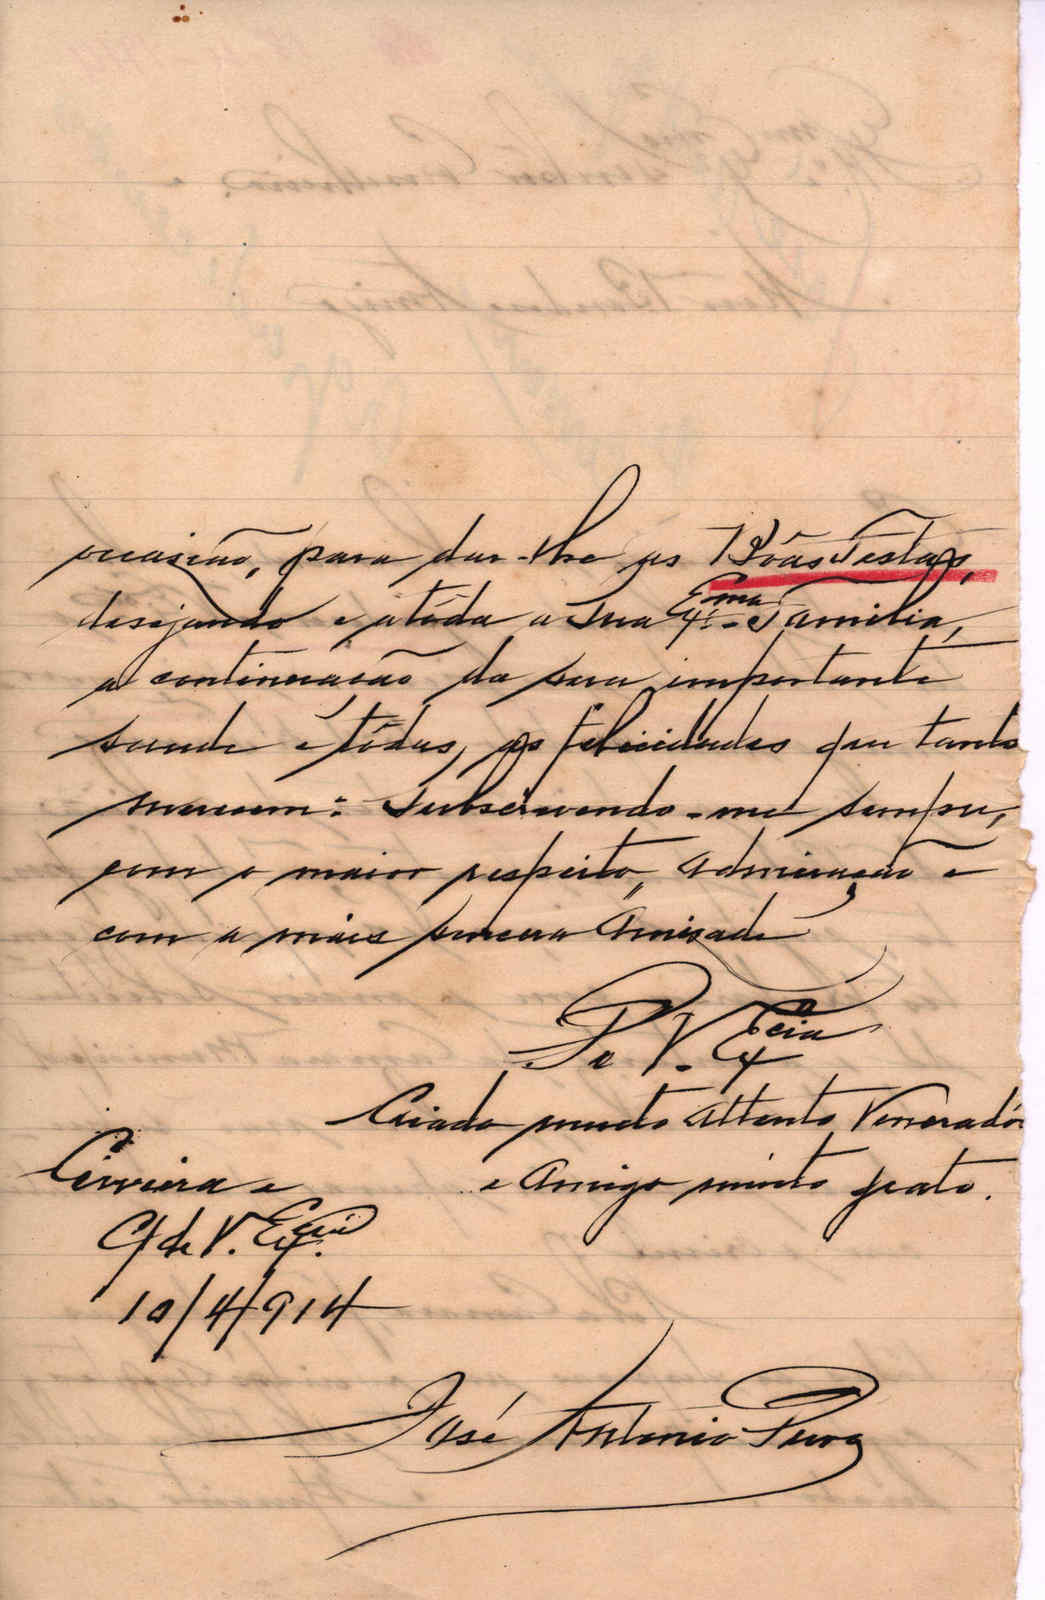 occasião, para dar-lhe as Bôas Festas,
desejando e a tôda a Sua Exma. Familia,
a continuação da sua importante
saude e tôdas, as felicidades que tanto
merecem: Subscrevendo-me sempre,
com o maior respeito, admiração e
com a mais sincera Amizade
De V. Excia
Criado muito Attento Veneradôr
Cerveira e
e Amigo muito grato.
C/ de V. Excia.
10/4/914
José Antonio